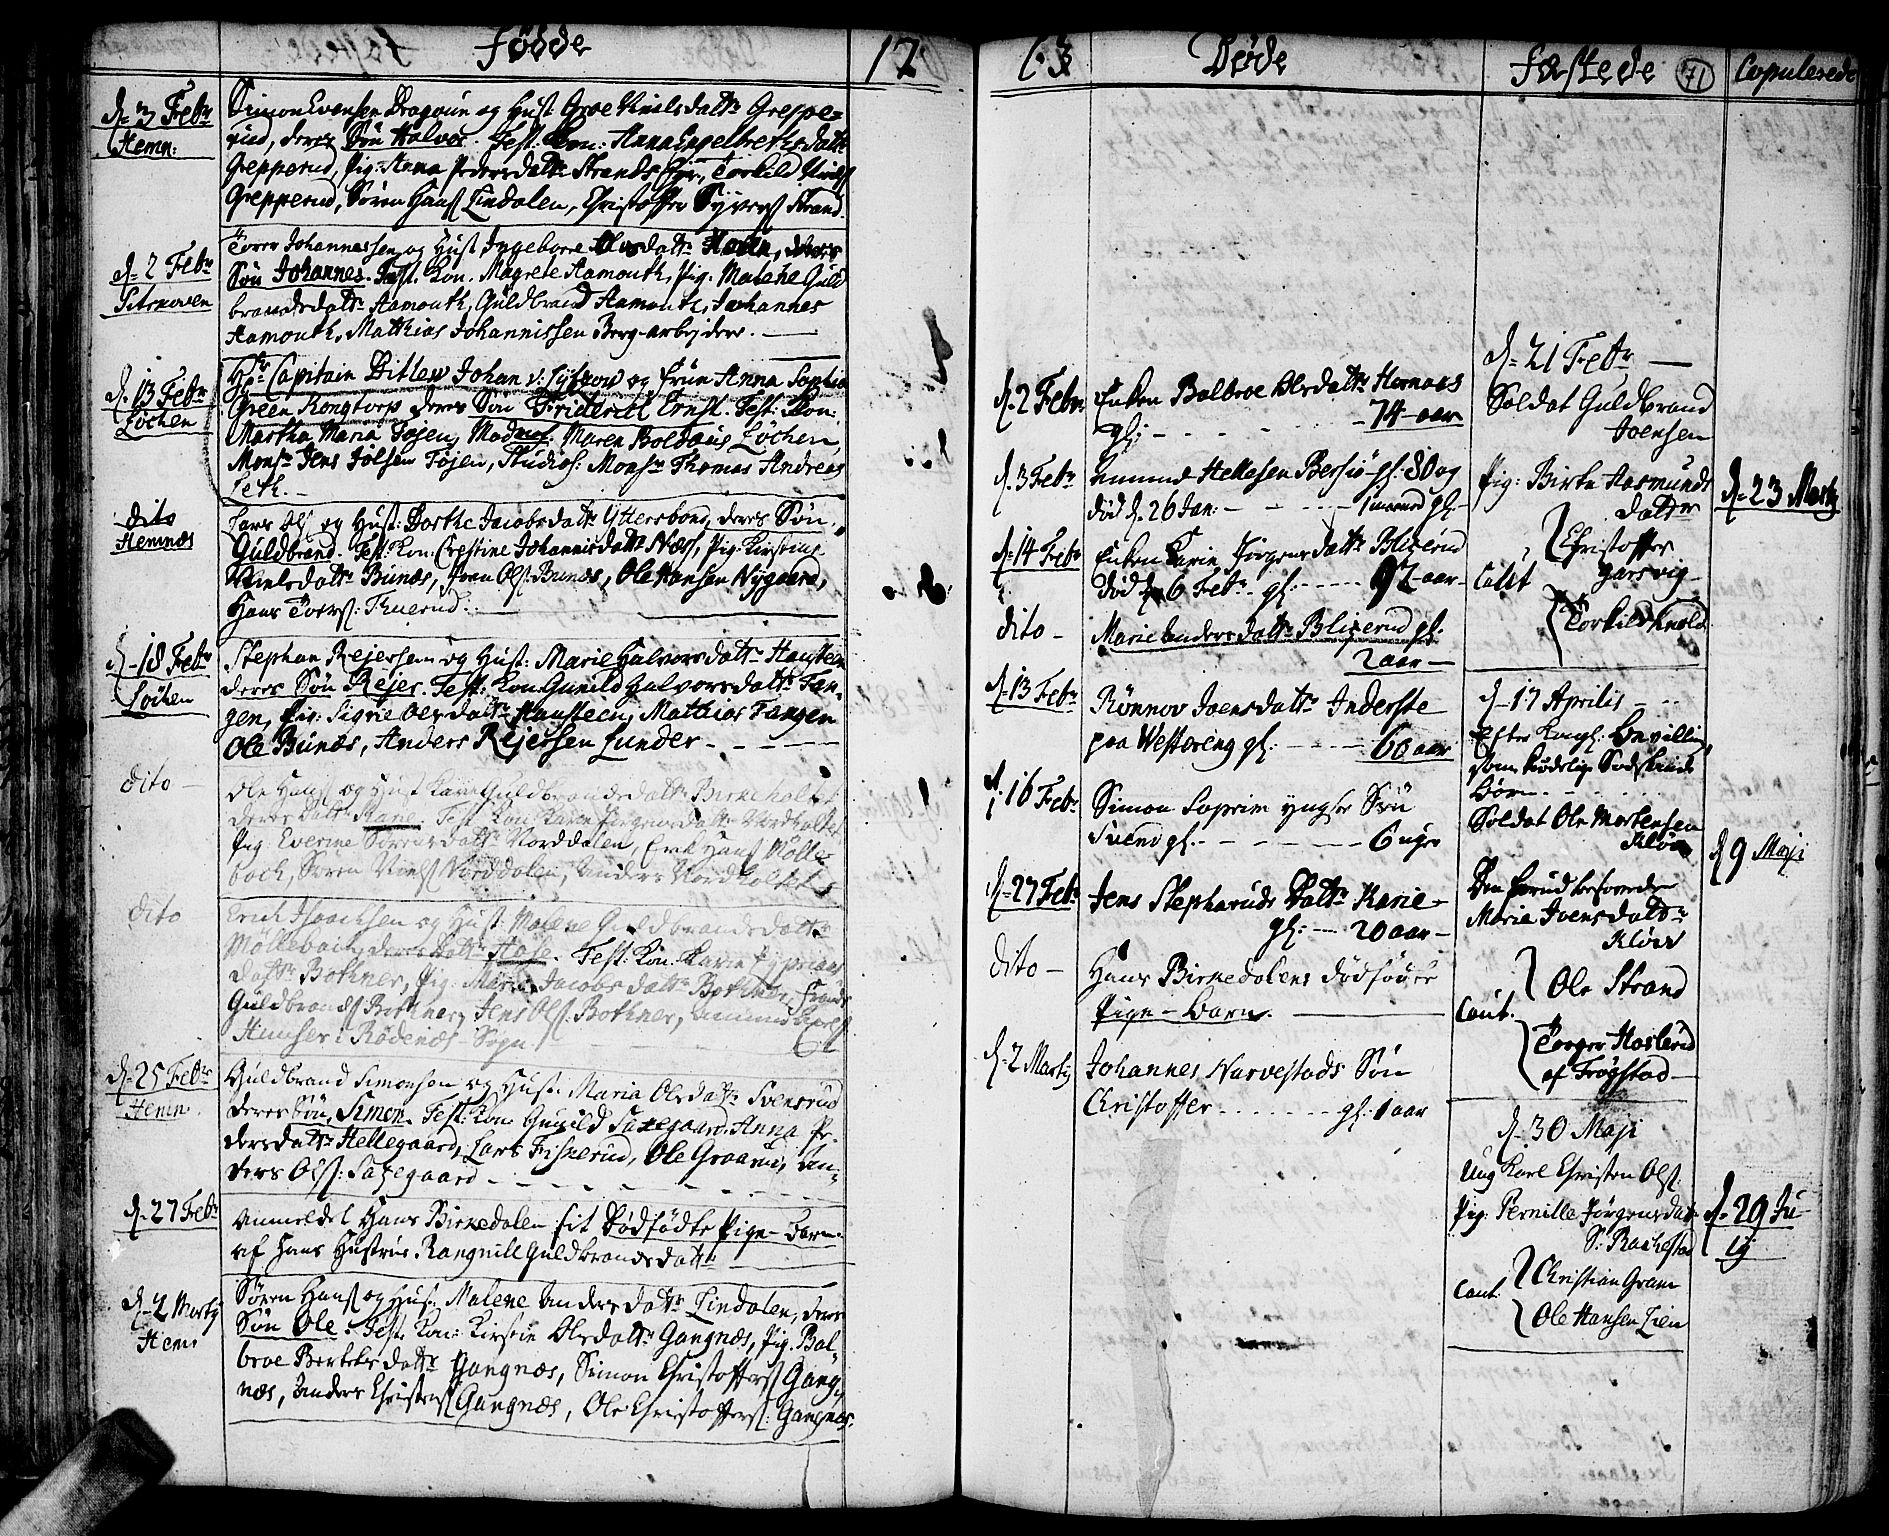 Fødde
17
d. 3 Febr
Hemn:
Simon Evensen Dragoun og Hust Groe Nielsdattr Greppe-
rud, deres Søn Halvor. Test: Kon: Anna Engelbrethsdattr
Grepperud, Pig: Anna Pedersdattr Strands Eyr, Torkild Niels
Grepperud, Søren Hans Lindalen, Christoffer Syvers Strand.
d. 2 Febr
Torer Johannessen og Hust Ingebore Olsdattr deres
Søn Johannes. Test. Kon. Magrete Aamouth, Pig: Malene Guld
brandsdattr Aamouth, Guldbrand Aamouth, Johannes
Aamouth, Matthias Johannissen Berg-arbejdere.
d. 13 Febr
Løchen
Hr. Capitain Ditlew Johan v: Lytzow og Frue Anna Sophia
Green Kongtorp deres Søn Friderich Ernst. Test: Kon:
Martha Maria Tøjen, Maren Boldaus Løchen,
Monsr Jens Jølsen Tøjen, Studios: Monsr Thomas Andreas
Leth.
dito
Hemnæs
Lars Ols og Hust: Dorthe Jacobsdattr Yttersbond, deres Søn
Guldbrand. Test: Kon: Crestine Johannisdattr Næs, Pig: Kirstine
Nielsdattr Bunæs, Iven Ols: Bunæs, Ole Hansen Nygaard,
Hans Tvers: Thuerud.
d. 18 Febr
Løchen
Stephan Rejersen og Hust: Marie Halvorsdattr Hansteen
deres Søn Rejer. Test: Kon. Gunild Halvorsdattr Tan-
gen, Pig: Sigrie Olesdattr Hansteen, Matthias Tangen
Ole Bunæs, Anders Rejersen Lunder
dito
Ole Hans og Hust Kari Guldbrandsdattr Birkeholtet
deres Dattr Karie. Test. Kon Karen Jørgensdattr Nordholtet
Pig Everine Sørensdattr Norddalen, Erik Hans Mölle
bock, Søren Niels Norddalen, Anders Nordholtet
dito
Erich Isaachsen og Hust Malene Guldbrandsdattr
Möllebock deres Dattr Test: Kon. Karie Cyprians
dattr Bothner, Pig: Maria Jacobsdattr Bothner, Frands
Guldbrands Bothner, Jens Ols: Bothner, Amund
i Rödenæs Sogn.
d. 25 Febr
Hemn.
Guldbrand Simonsen og Hust: Maria Olsdattr Svensrud
deres Søn Simon. Test: Kon Gunild Sazegaard, Anna Pe-
dersdattr Hellegaard, Lars Fiskerud, Ole Graarud, An-
ders Ols: Sazegaard
d. 27 Febr
Anmeldet Hans Birkedalen sit Dødfødte Pige-Barn.
af Hans Hustrue Rangnill Guldbrandsdattr
d. 2 Martÿ
Hemn
Søren Hans og Hust: Malene Andersdattr Lindalen, deres
Søn Ole. Test. Kon: Kirstie Olsdattr Gangnæs, Pig. Bol-
broe Bertelsdattr Gangnæs, Simon Christoffers Gang-
næs, Anders Christens Gangnæs, Ole Christoffers: Gangnæs.
63
Døde
d. 2 Febr
Enken Bolbroe Olsdattr Hornaas
gl: 74 aar
d. 3 Febr
Amund Hellesen Bersiø gl: 80 og
død d. 26 Jan: 1 maaned gl.
d. 14 Febr
Enken Karie Jørgensdattr Blixrud
død d. 6 Febr. gl: 92 aar
dito
Marie Andersdattr Blixrud gl:
2 aar
d. 13 Febr
Rønnov Joensdattr Inderste
paa Westereng gl: 60 aar
d. 16 Febr
Simon Soprim yngste Søn
Svend gl: 6 uger
d. 27 Febr
Jens Stepharuds Dattr Karie
gl: 20 aar
dito
Hans Birkedalens dødfødte
Pige-Barn.
d. 2 Martÿ
Johannes Narvestads Søn
Christoffer gl: 1 aar
Fæstede
71
d. 21 Febr
Soldat Guldbrand
Joensen
Pig: Birte Aasmunds
dattr
Caut
Christoffer
Garsvig
Torkild Knold
d. 17 Aprilis
Efter Kngl: Bevilling
som kiødelig Sødskende
Børn
Soldat Ole Mortensen
Kløv
Den forud besovede
Maria Joensdattr
Kløv
Caut.
Ole Strand
Torger Haslerud
af Trøgstad
d. 30 Maji
Ung Karl Christen Ols:
Pig: Pernille Jørgensdat
S: Rackestad
Caut.
Christian Gram
Ole Hansen Lien
Copulerede
d. 23 Martÿ
d 9 Maji
d. 29 Ju-
lij